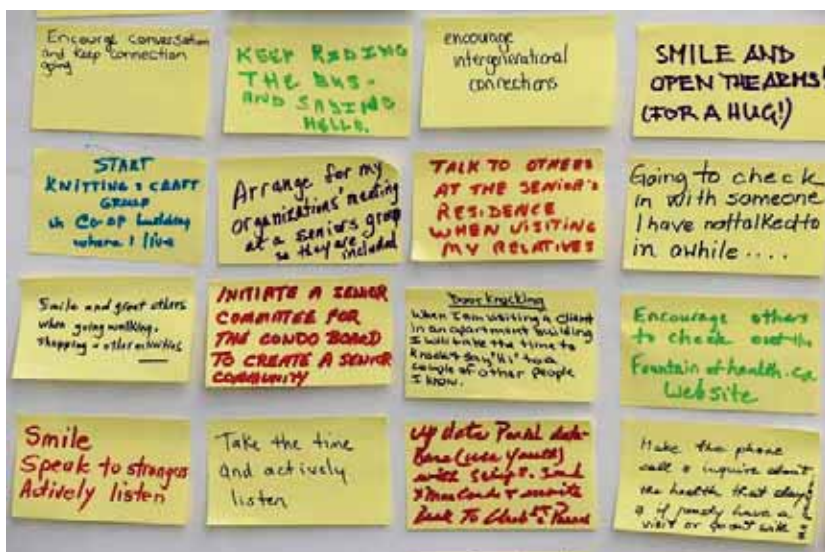 Encourge conversation
and keep connection
going
KEEP RIDING
THE BUS -
AND SAYING
HELLO.
encourage
intergenerational
connections
SMILE AND
OPEN THE ARMS!
(FOR A HUG!)
START
KNITTING & CRAFT
GROUP
in Co-op building
where I live
Arrange for my
organizations' meeting
at a seniors group
so they are
included
TALK TO OTHERS
AT THE SENIOR'S
RESIDENCE
WHEN VISITING
MY RELATIVES
Going to check
in with someone
I have not talked to
in awhile ....
Smile and greet others
when going walking,
shopping or other activities
INITIATE A SENIOR
COMMITTEE FOR
THE CONDO BOARD
TO CREATE A SENIOR
COMMUNITY
Door Knocking
When I am visiting a client
in an apartment building
I will take the time to
knock & say "Hi" to a
couple of other people
I know.
Encourage others
to check out the
Fountain of health.ca
Website
Smile
Speak to strangers
Actively listen
Take the time
and actively
listen
Up data Parish data-
Base (use Youth)
with script. Send
Xmas Cards & invite
Back To
Make the phone
call & inquire about
the health that day
& if possible have a
visit or